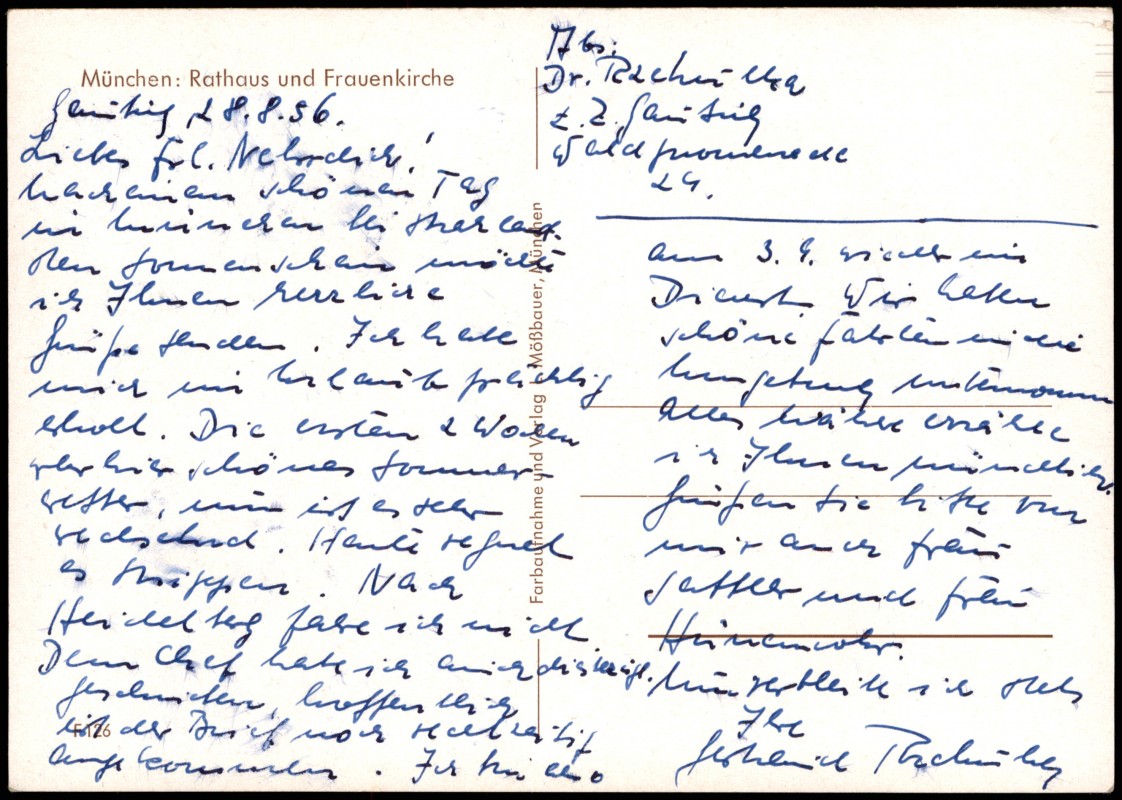 München: Rathaus und Frauenkirche
Gauting, 28.8.56.
Liebes Frl. !
Nach einem schönen Tag
in München bei strahlen-
den Sonnenschein möchte
ich Ihnen herzliche
Grüße senden. Ich habe
mich im Urlaub prächtig
erholt. Die ersten 2 Wochen
war hier schönes Sommer-
wetter, nun ist es sehr
wechselnd. Heute regnet
es Strippen. Nach
Heidelberg fahre ich nicht
Dem Chef habe ich auch
geschrieben, hoffentlich
ist der Brief noch rechtzeitig
angekommen. Ich bin also
F 126
Farbaufnahme und Verlag Mößbauer, München
Abs.:
Dr.
z. Z. Gauting
Waldpromenade
24.
am 3. 9. wieder im
Dienst. Wir haben
schöne Fahrten in die
Umgebung unternommen
Alles nähere erzähle
ich Ihnen mündlich.
Grüßen Sie bitte von
mir auch Frau
Sattler und Frau
Nun verbleibe ich stets
Ihre